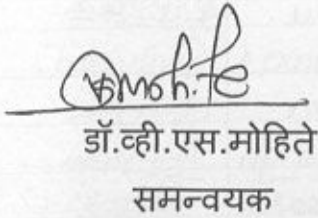 डॉ.व्ही.एस.मोहिते
समन्वयक